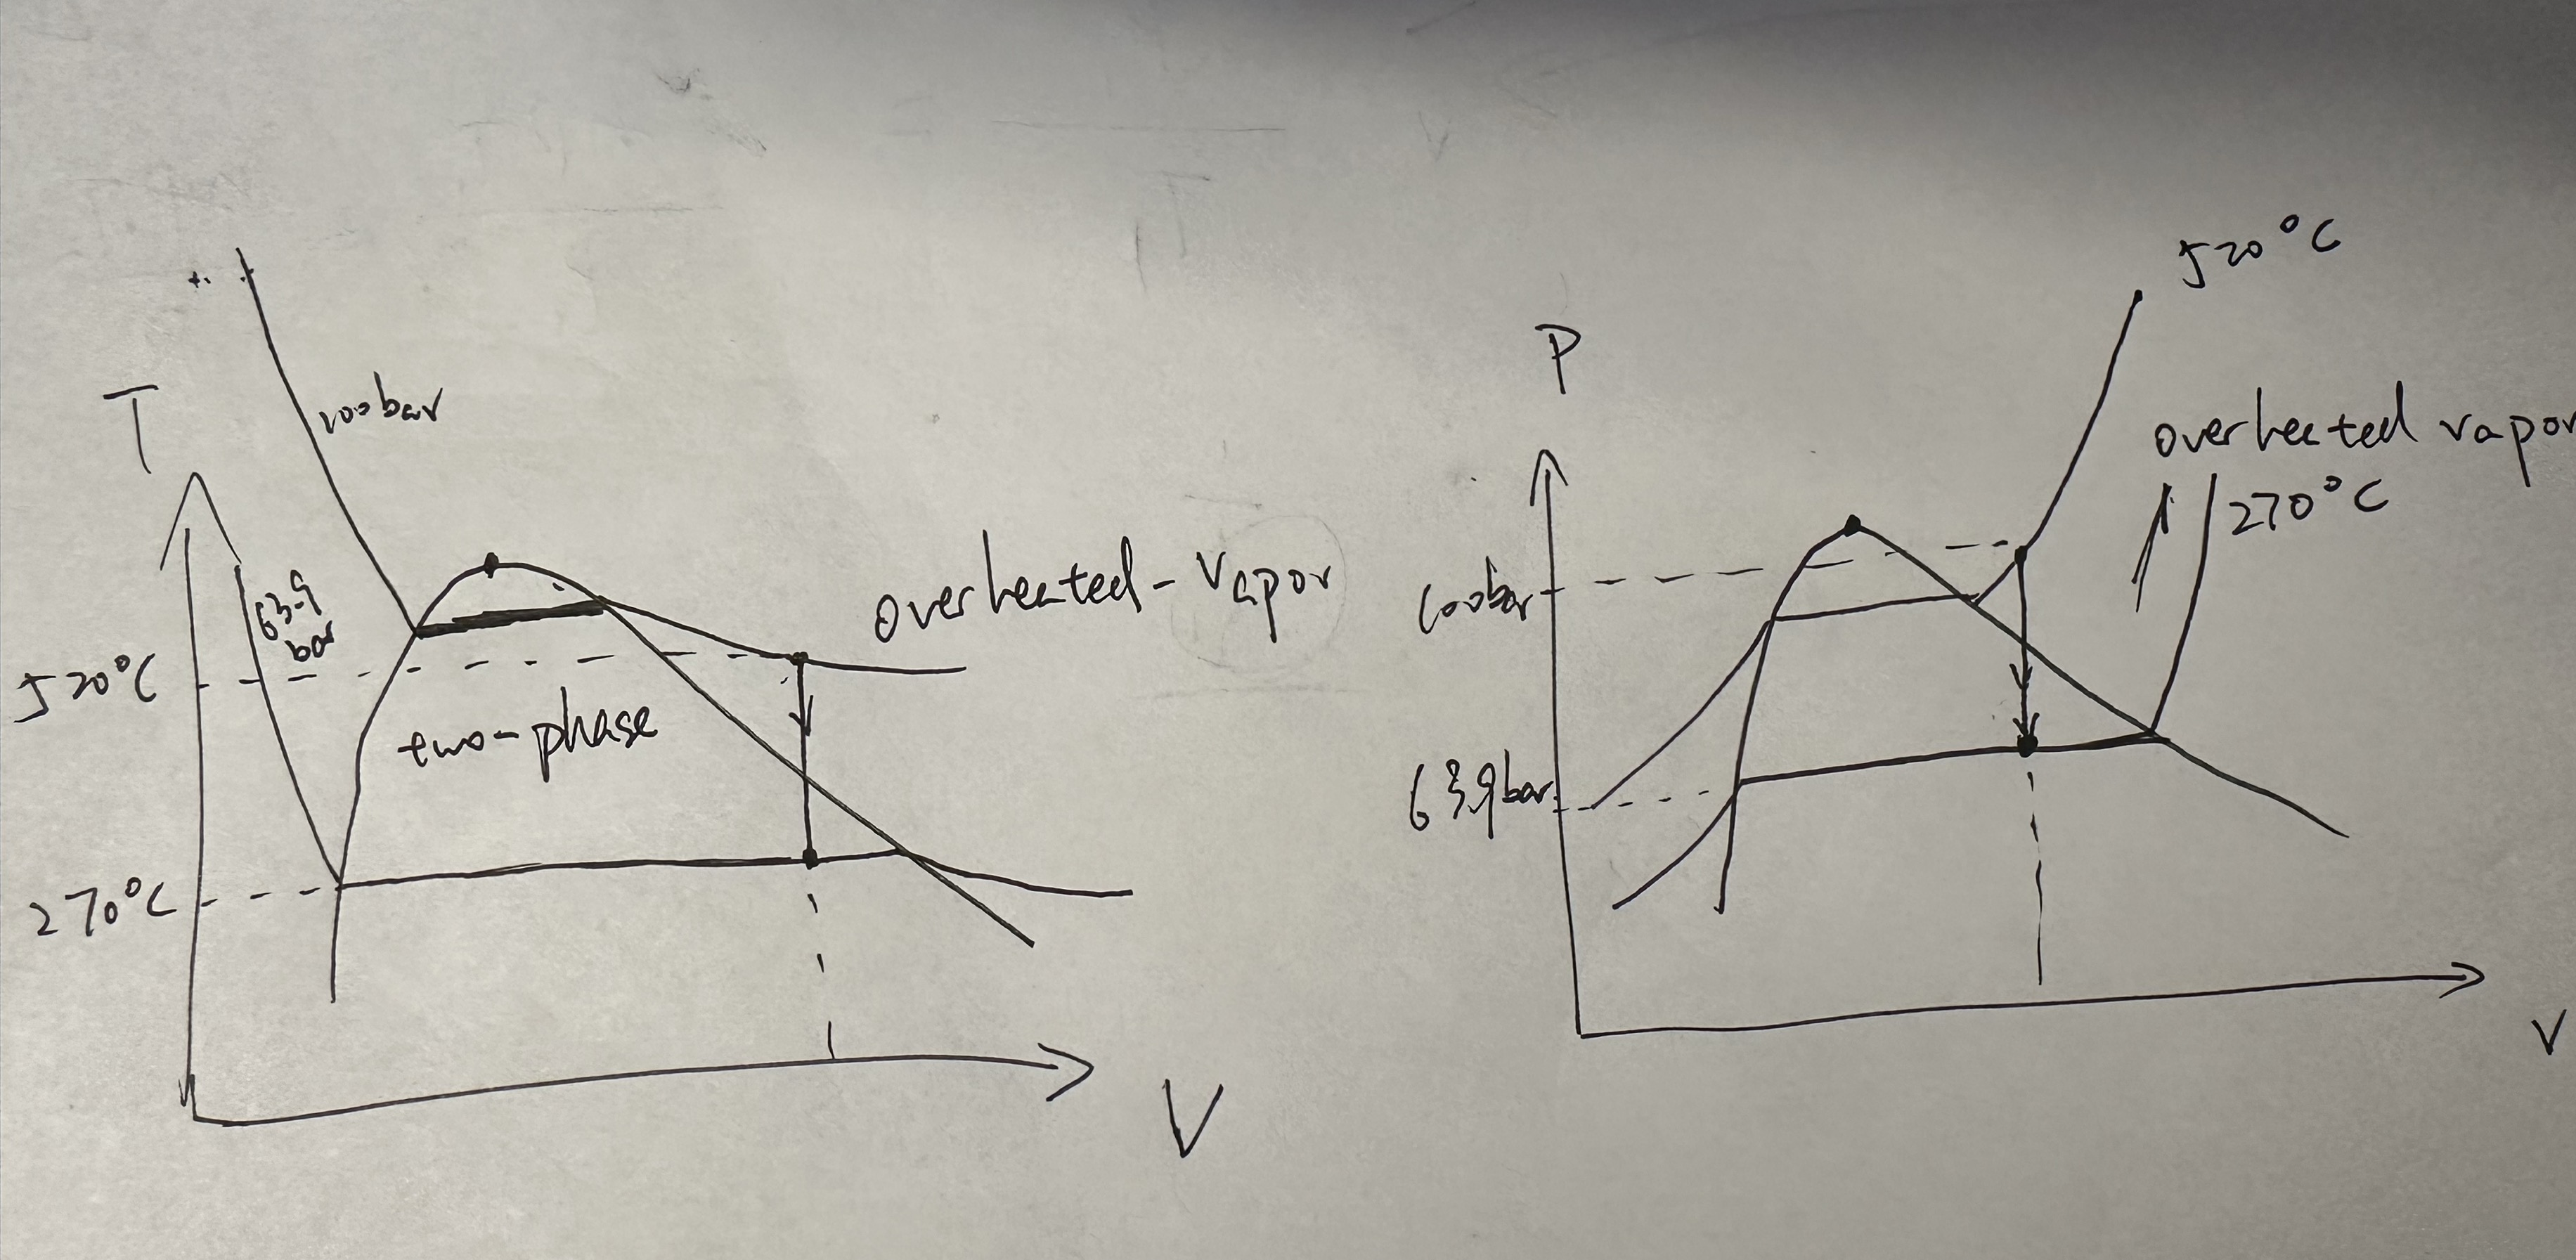 T
100bar
63.9
bar
520°C
overheated-vapor
two-phase
270°C
V
P
520°C
overheated vapor
270°C
100bar
63.9bar
V